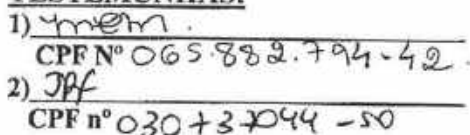 TESTEMUNHAS:
1)
CPF Nº 065.882.794-42.
2)
CPF nº 030737044-50